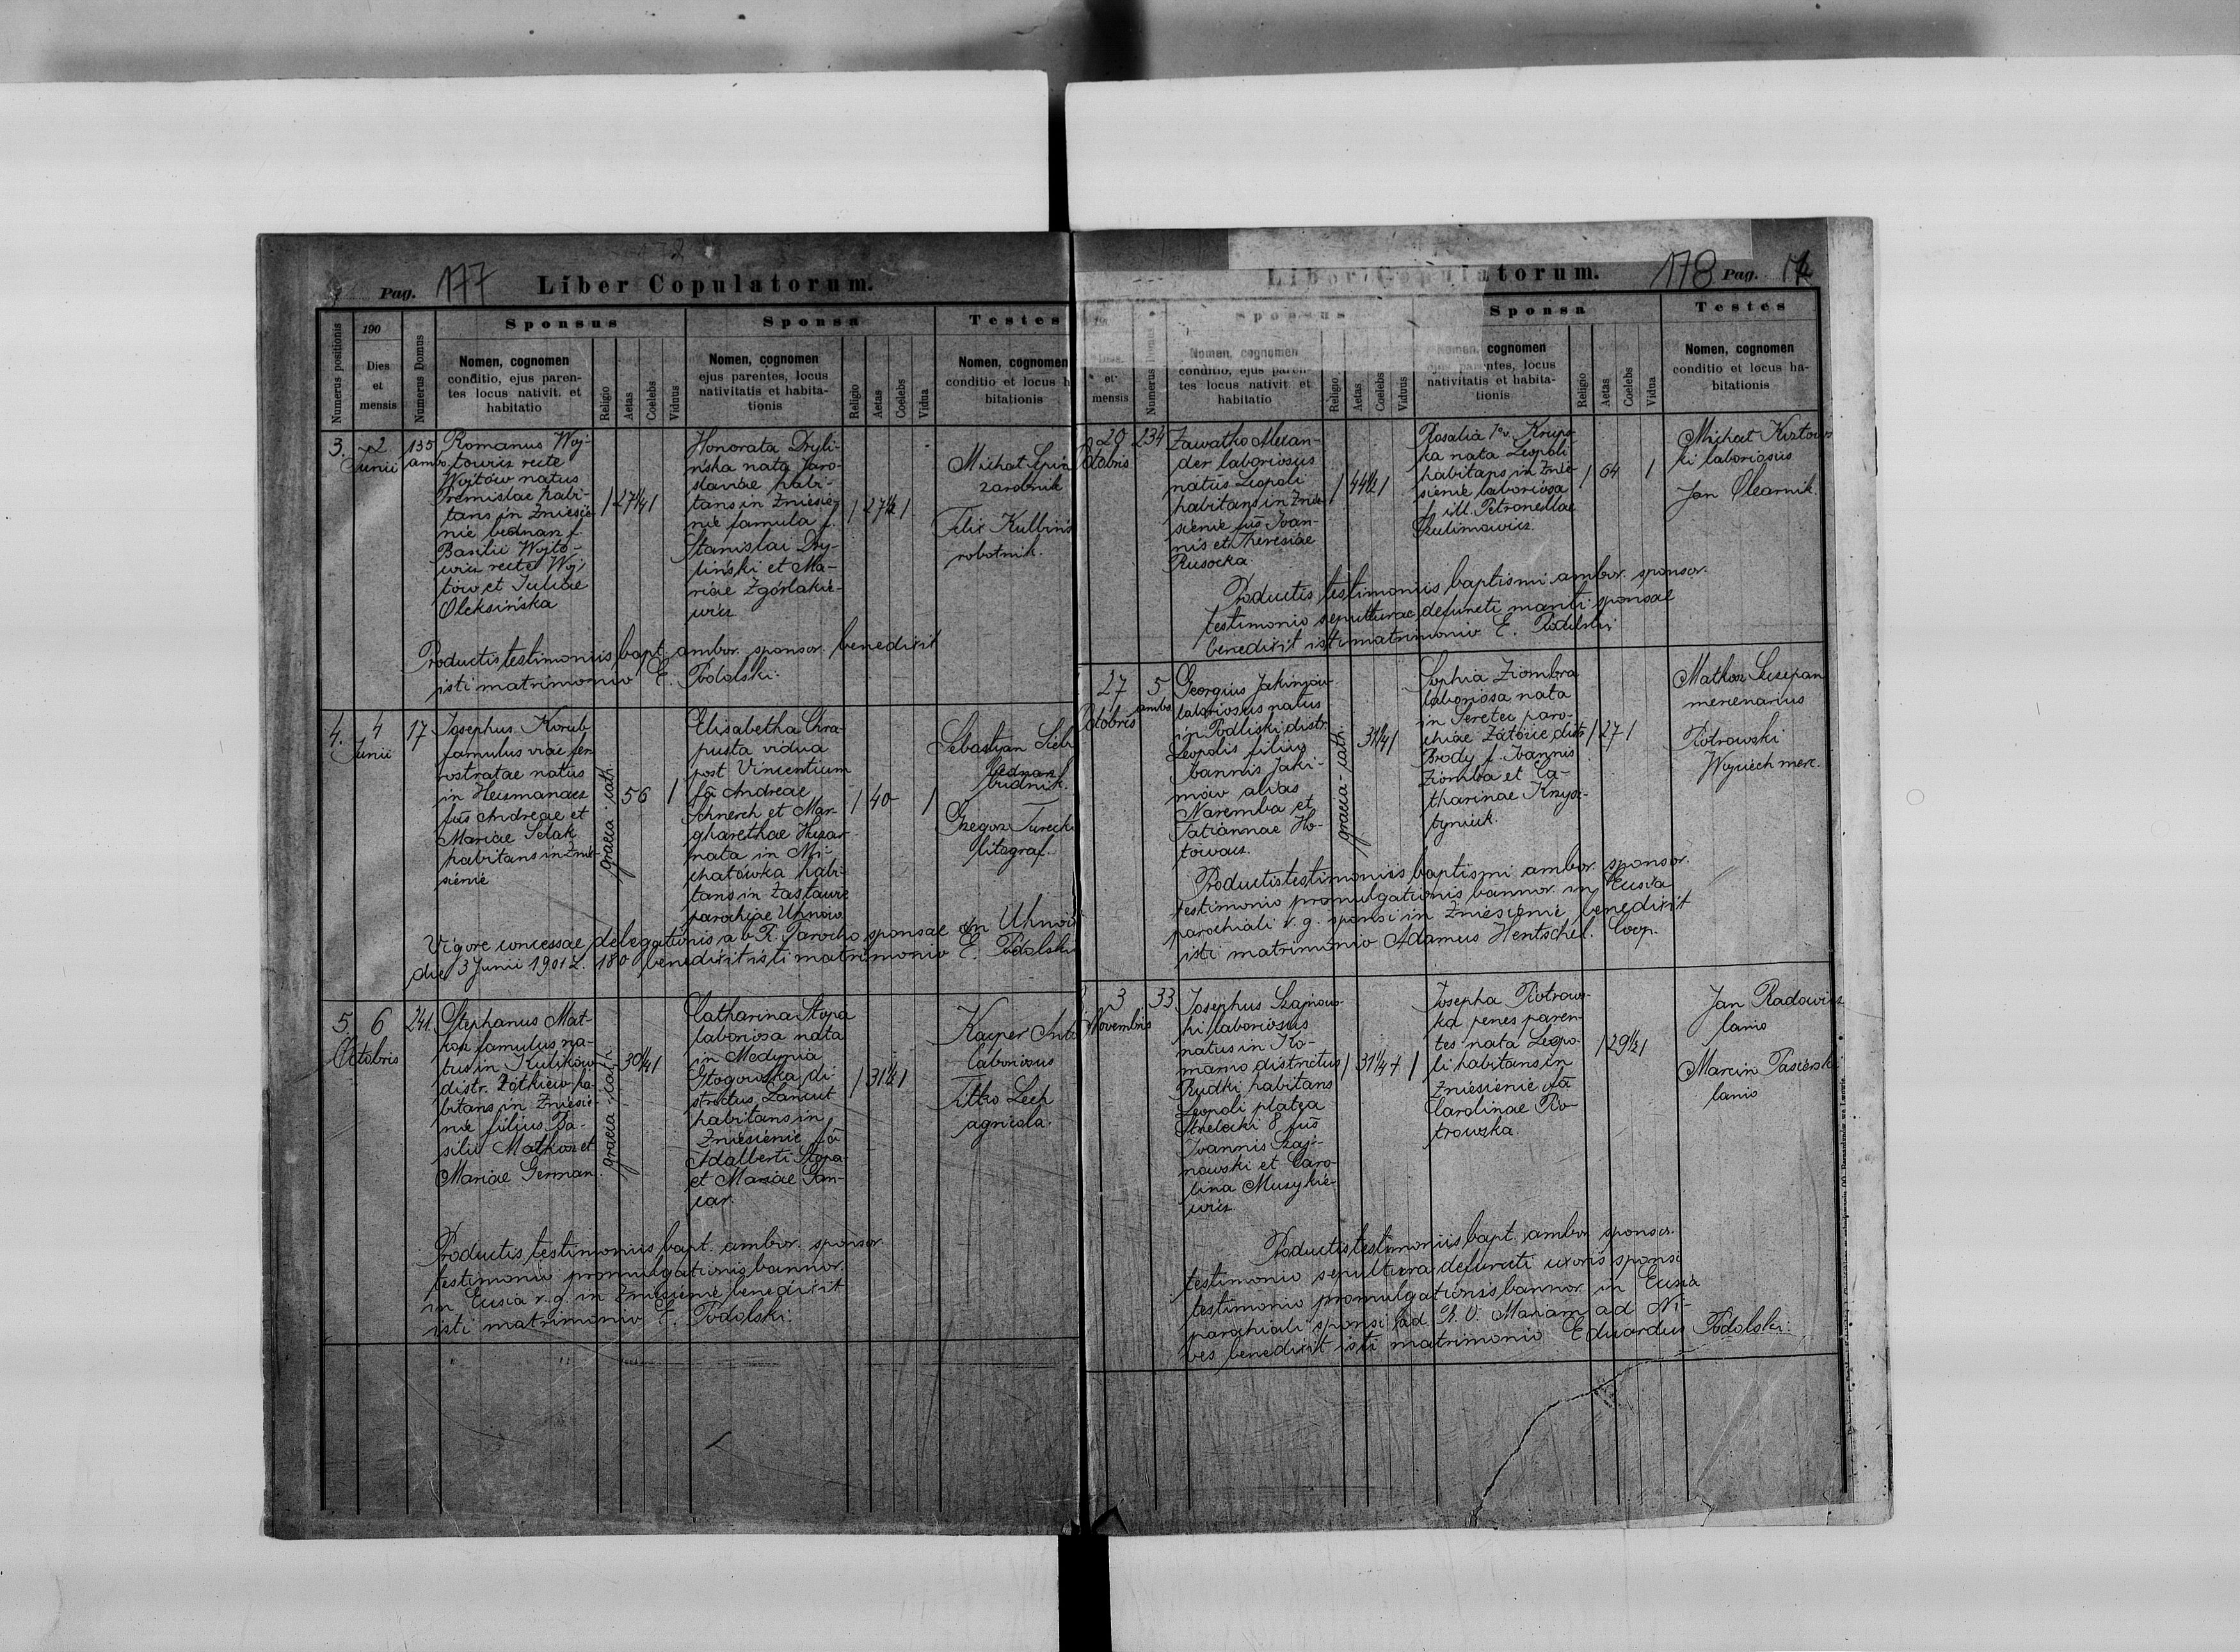 Pag. 177 Liber Copulatorum.
Numerus positionis
190
Dies
et
mensis
Numerus Domus
Sponsus
Nomen, cognomen
conditio, ejus paren-
tes locus nativit. et
habitatio
Religio
Aetas
Coelebs
Viduus
Sponsa
Nomen, cognomen
ejus parentes, locus
nativitatis et habita-
tionis
Religio
Aetas
Coelebs
Vidua
Testes
Nomen, cognomen
conditio et locus h
bitationis
3.
2
Junii
135
ambo
Romanus Woj-
towicz recte
Wojtów natus
Premislae habi-
tans in Zniesie-
nie bednarz f.
Basilii Wojto-
wicz recte Woj-
tów et Juliae
Oleksińska
27¼
Honorata Dryli-
ńska nata Jaro-
slaviae habi-
tans in Zniesie-
nie famula f.
Stanislai Dry-
liński et Ma-
riae Zgórlakie-
wicz
27½
Michał
zarobnik
robotnik.
Productis testimoniis bapt. ambor. sponsor. benedixit
isti matrimonio E. Podolski.
4.
4
Junii
17
Josephus Korub
famulus viae fer
rostratae natus
in
fus Andreae et
Mariae Selak
habitans in Znie-
sienie
graeca-cath.
56
Elisabetha Chra-
pusta vidua
post Vincentium
fa Andreae
Schnerch et Mar-
gharethae Huzar
nata in Mi-
chałówka habi-
tans in Zastawie
parochiae Uhnów
40
Sebastyan
bednarz
budnik.
Grzegorz Turecki
litograf.
Vigore concessae delegationis a b R. Parocho sponsae in Uhnów
die 3 Junii 1901 L. 180 benedixit isti matrimonio E. Podolski
5.
6
Octobris
241.
Stephanus Mat-
kosz famulus na-
tus in Kulików
distr. Żółkiew ha-
bitans in Zniesie-
nie filius Ba-
silii Matkosz et
Mariae German.
graeca-cath.
30¼
Catharina Stopa
laboriosa nata
in Medynia
Głogowska di-
strictus Łańcut
habitans in
Zniesienie fa
Adalberti Stopa
et Mariae Gan-
car.
31½
Kacper
laboriosus
Titko Lech
agricola.
Productis testimoniis bapt. ambor. sponsor.
testimonio promulgationis bannor.
in Eccsia r. g. in Zniesienie benedixit
isti matrimonio E. Podolski.
Liber Copulatorum. 178 Pag.
Dies
et
mensis
Numerus Domus
Sponsus
Nomen, cognomen
conditio, ejus paren-
tes locus nativit. et
habitatio
Religio
Aetas
Coelebs
Viduus
Sponsa
Nomen, cognomen
ejus parentes, locus
nativitatis et habita-
tionis
Religio
Aetas
Coelebs
Vidua
Testes
Nomen, cognomen
conditio et locus ha-
bitationis
20
Octobris
234
Zawatko Alexan-
der laboriosus
natus Leopoli
habitans in Znie-
sienie fus Joan-
nis et Theresiae
Rusocka.
44½
Rosalia 1° v. Krups-
ka nata Leopoli
habitans in Znie-
sienie laboriosa
f. ill. Petronellae
Kulimowicz.
64
Michał
ki laboriosus
Jan Olearnik.
Productis testimoniis baptismi ambor. sponsor.
testimonio sepulturae defuncti mariti sponsae
benedixit isti matrimonio E. Podolski
27
Octobris
5
ambo
Georgius Jakimów
laboriosus natus
in Podliski distr.
Leopolis filius
Joannis Jaki-
mów alias
Naremba et
Tatiannae Ho-
towacz.
graeca-cath.
31¼
Sophia Ziombra
laboriosa nata
in Seretec paro-
chiae Załoźce distr
Brody f. Joannis
Ziomba et Ca-
tharinae Krzyś-
tyniuk.
27
Matkosz Szczepan
mercenarius
Piotrowski
Wojciech merc.
Productis testimoniis baptismi ambor. sponsor.
testimonio promulgationis bannor. in Eccsia
parochiali r. g. sponsi in Zniesienie benedixit
isti matrimonio Adamus Hentschel. Coop.
3
Novembris
33.
Josephus Szajnows-
ki laboriosus
natus in Ko-
marno districtus
Rudki habitans
Leopoli platea
Strzelecki 8 fus
Joannis Szaj-
nowski et Caro-
lina Muzykie-
wicz.
31¼
Josepha Piotrows-
ka penes paren-
tes nata Leopo-
li habitans in
Zniesienie fa
Carolinae Pio-
trowska.
29½
Jan Radowicz
lanio
Marcin
lanio
Productis testimoniis bapt. ambor. sponsor.
testimonio sepultura defuncti uxoris sponsi
testimonio promulgationis bannor. in Eccsia
parochiali sponsi ad B. V. Mariam ad Ni-
ves benedixit isti matrimonio Eduardus Podolski.